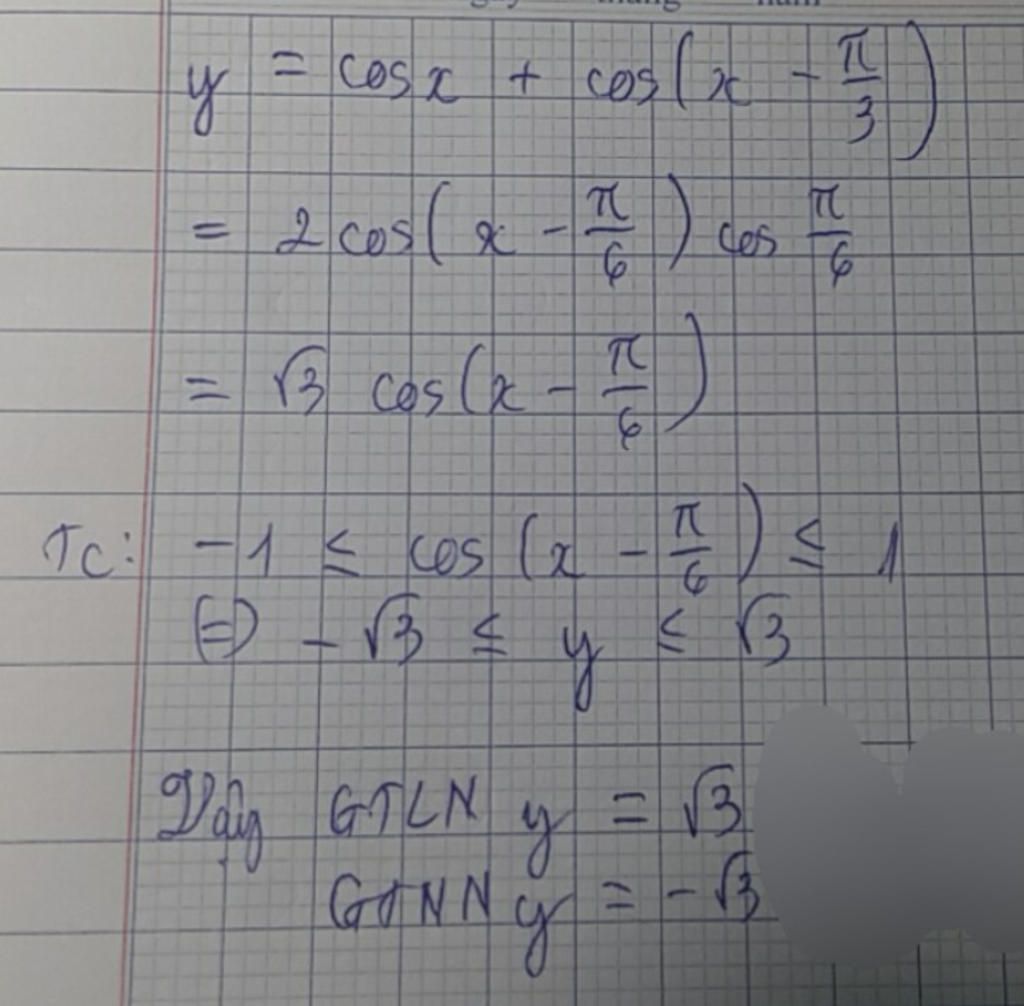 y = cosx + cos(x - π/3)
= 2cos(x - π/6) cos π/6
= √3 cos(x - π/6)
TC: -1 ≤ cos(x - π/6) ≤ 1
(=) -√3 ≤ y ≤ √3
Vậy GTLN y = √3
GTNN y = -√3